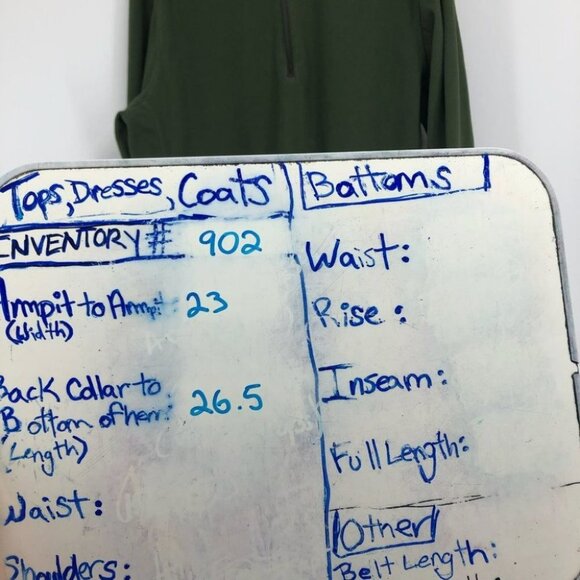 Tops, Dresses, Coats
INVENTORY # 902
Armpit to Armpit 23
(Width)
Back Collar to
Bottom of hem: 26.5
(Length)
Waist:
Shoulders:
Bottoms
Waist:
Rise:
Inseam:
Full Length:
Other
Belt Length: